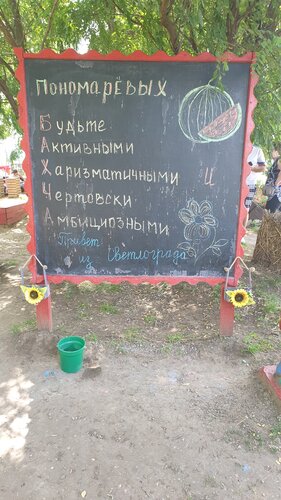 Пономарёвых
Будьте
Активными
Харизматичными и
Чертовски
Амбициозными
Привет
из Светлограда